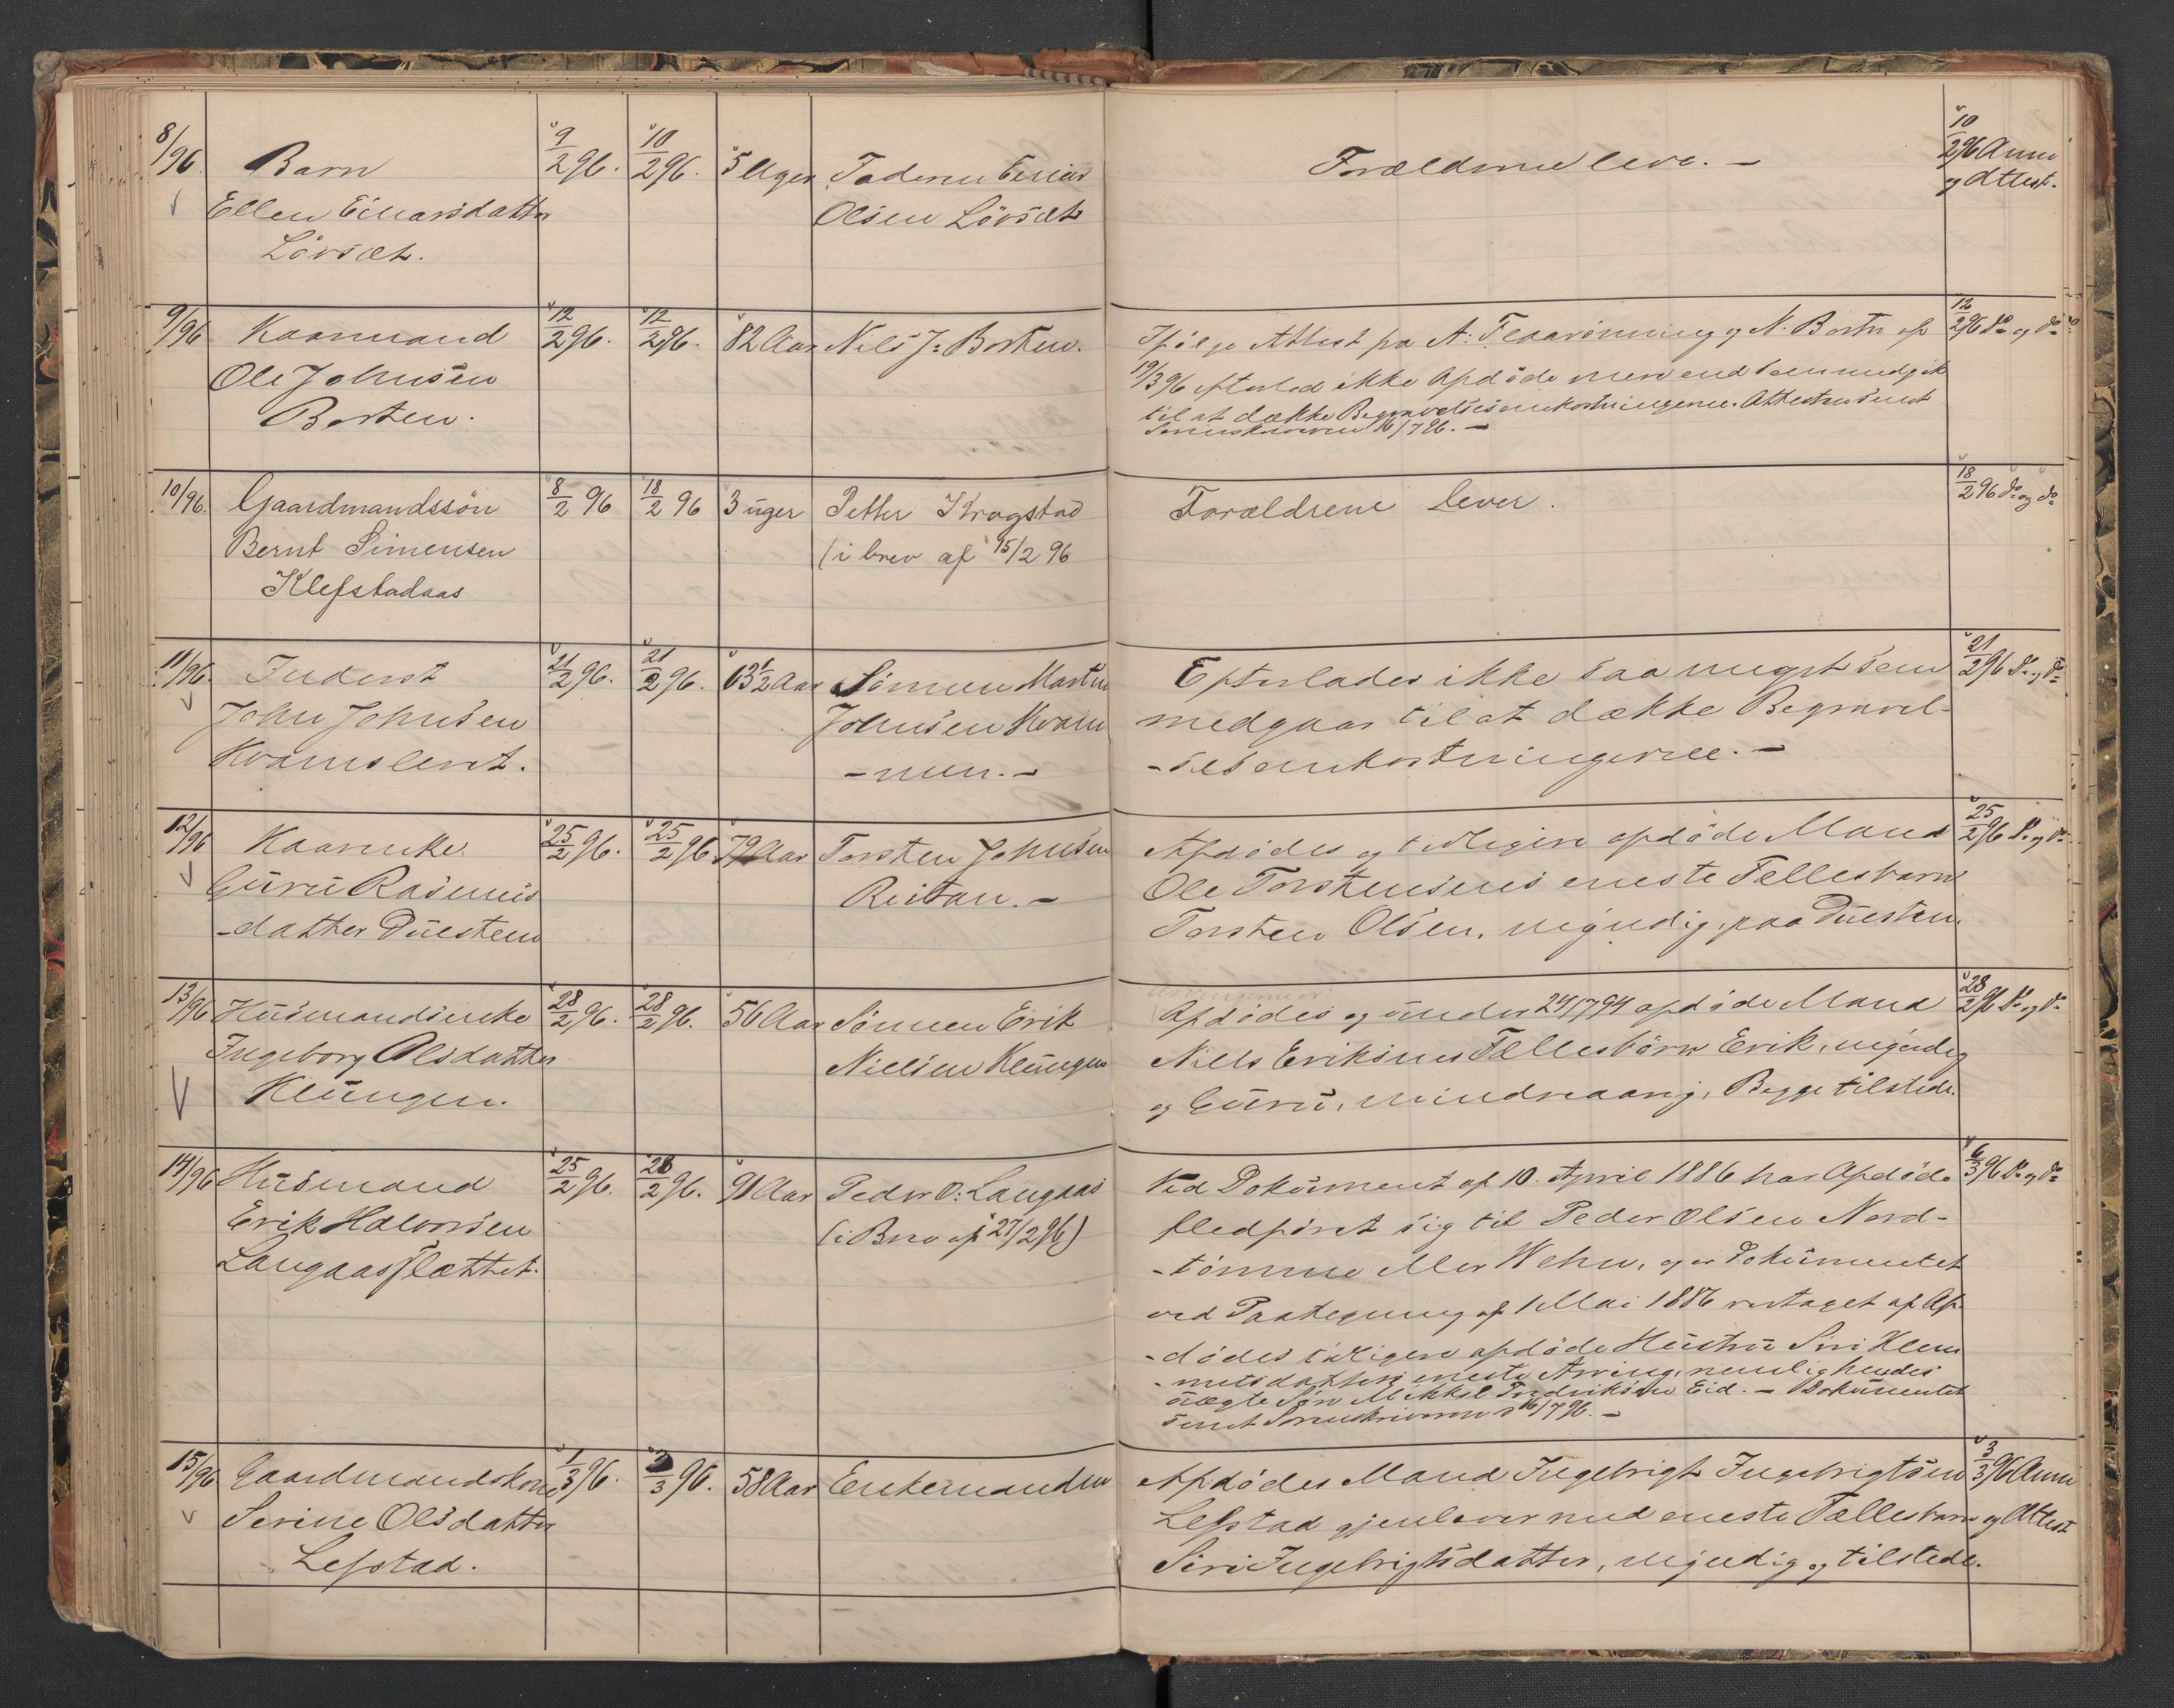 8/96.
Barn
Ellen Einarsdatter
Lövsæt.
9/2 96.
10/2 96.
5 Uger
Faderen Einar
Olsen Lövsæt
Forældrene leve. –
10/2 96 Anm
og Attest.
9/96
Kaarmand
Ole Johnsen
Borten.
12/2 96.
12/2 96.
82 Aar
Nils J: Borten.
Ifølge Attest fra A: Flaarönning og N. Borten af
19/3 96 efterlod ikke Afdöde mere end som medgik
til at dække Begravelsesomkostningerne. Attesten sendt
Sorenskriveren 16/7 96. –
12/2 96 do og do
10/96.
Gaardmandssön
Bernt Simensen
Klefstadaas
8/2 96
18/2 96
3 uger
Petter Krogstad
(i brev af 15/2 96
Forældrene lever.
18/2 96 do og do
11/96.
Inderst
John Johnsen
Kvamslent.
21/2 96.
21/2 96.
63 1/2 Aar
Sönnen Martin
Johnsen Kvam
-men. –
Efterlades ikke saa meget som
medgaar til at dække Begravel-
-sesomkostningerne. –
21/2 96 do og do
12/96
Kaarenke
Guru Rasmus
-datter Duesten
25/2 96.
25/2 96
79 Aar
Torsten Johnsen
Reitan. –
Afdödes og tidligere afdöde Mand
Ole Torstensens eneste Fællesbarn
Torsten Olsen, myndig, paa Duesten.
25/2 96 do og do
13/96
Husmandsenke
Ingeborg Olsdatter
Klungen.
28/2 96.
28/2 96.
56 Aar
Sönnen Erik
Nielsen Klungen
Afdödes og under 24/7 94 afdöde Mand
Niels Eriksens Fællesbörn Erik, myndig
og Guru, mindreaarig, Begge tilstede.
28/2 96 do og do
14/96
Husmand
Erik Halvorsen
Langaasslættet.
25/2 96.
28/2 96.
91 Aar
Peder O: Langaas
(i Brev af 27/2 96)
Ved Dokument af 10. April 1886 har Afdöde
fledföret sig til Peder Olsen Nord-
-tömme eller Wehn, og er Dokumentet
ved Paategning af 1 Mai 1886 vedtaget af Af-
-dödes tidligere afdöde Hustru Siri Klem
-metsdatters eneste Arving, nemlig hendes
uægte Sön Mikkel Fredriksen Eid. – Dokumentet
sendt Sorenskriveren 16/7 96. –
6/3 96 do og do
15/96
Gaardmandskone
Serine Olsdatter
Lefstad.
1/3 96.
3/3 96.
58 Aar
Enkemanden
Afdödes Mand Ingebrigt Ingebrigtsen
Lefstad gjenlever med eneste Fællesbarn
Siri Ingebrigtsdatter, myndig og tilstede.
3/3 96 Anm
og Attest